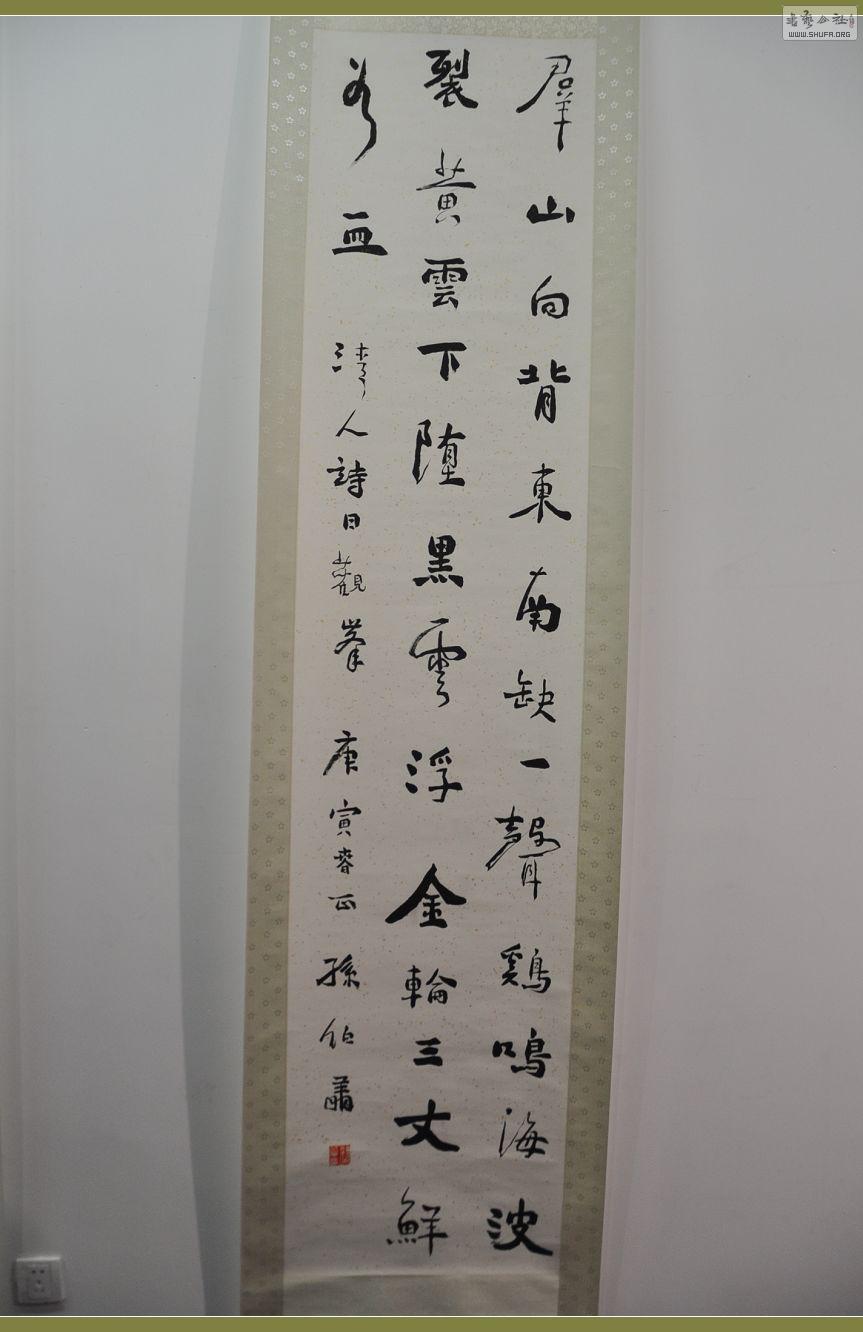 羣山向背東南缺一聲鷄鳴海波
裂黄雲下墮黑雲浮金輪三丈鮮
於血
清人詩日觀峯 庚寅春正 孫伯翔
WWW.SHUFA.ORG